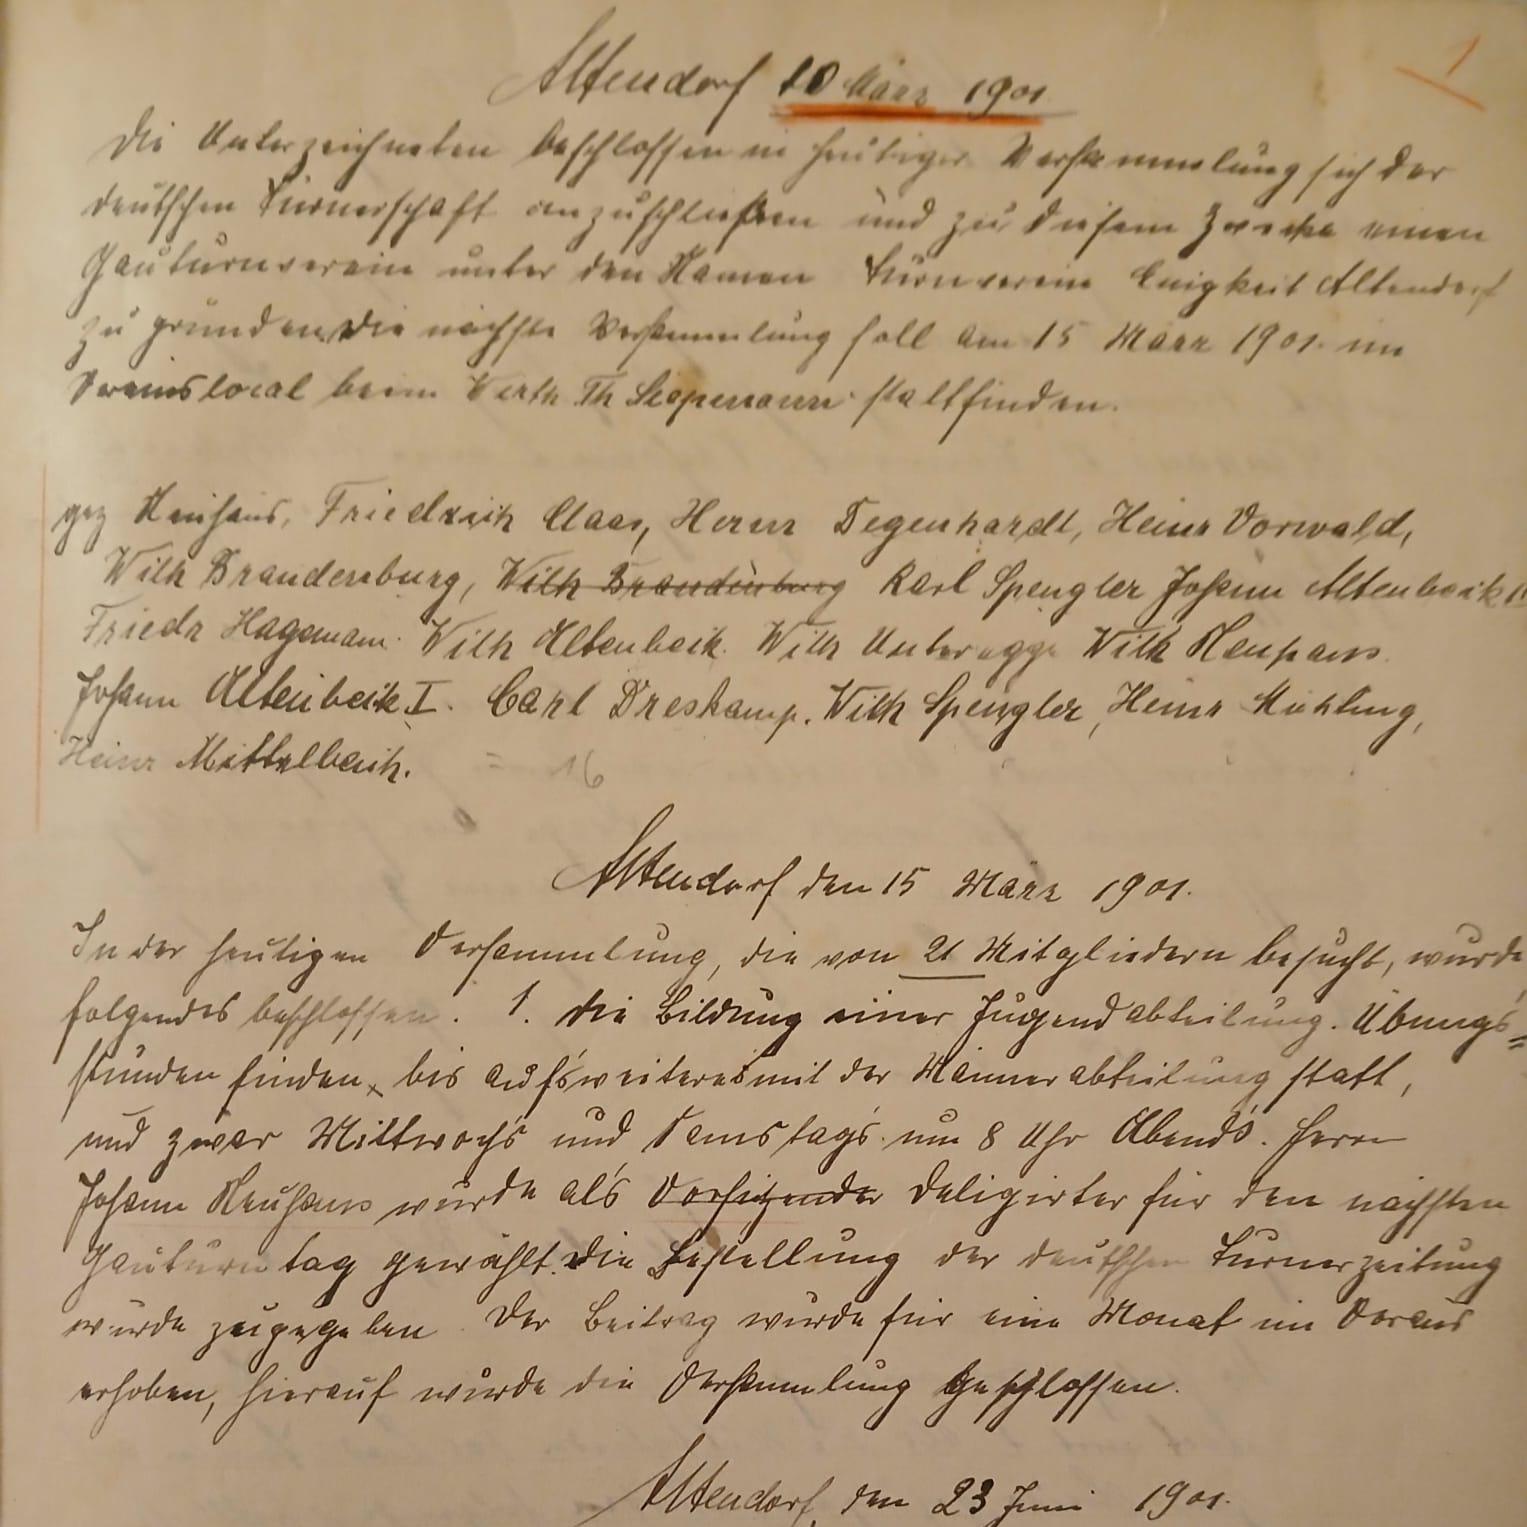 1
Altendorf 10 März 1901
Die Unterzeichneten beschlossen in heutiger Versammlung sich der
deutschen Turnerschaft anzuschließen und zu diesem Zwecke einen
Gauturnverein unter den Namen Turnverein Einigkeit Altendorf
zu gründen. Die nächste Versammlung soll am 15 März 1901. im
Vereinslocal beim Wirth Th Siepmann stattfinden.
gez Neuhaus, Friedrich Claas, Herm Degenhardt, Heinr Vorwald,
Wilh Brandenburg, Wilh Brandenburg Karl Spengler Johann Altenbeck II
Friedr Hagemann. Wilh Altenbeck. Wilh Unteregge Wilh Neuhaus.
Johann Altenbeck I. Carl Dreskamp. Wilh Spengler, Heinr Mühling,
Heinr Mittelbach. = 16
Altendorf den 15 März 1901.
In der heutigen Versammlung, die von 21 Mitgliedern besucht, wurde
folgendes beschlossen. 1. Die Bildung einer Jugendabteilung. Übungs=
stunden finden bis auf's weiteres mit der Männerabteilung statt,
und zwar Mittwoch's und Samstag's um 8 Uhr Abend's. Herrn
Johann Neuhaus wurde als Vorsitzender Deligirter für den nächsten
Gauturntag gewählt. Die Bestellung der deutschen Turnerzeitung
wurde zugegeben. Der Beitrag wurde für eine Monat im Voraus
erhoben, hierauf wurde die Versammlung geschlossen.
Altendorf, den 23 Juni 1901.